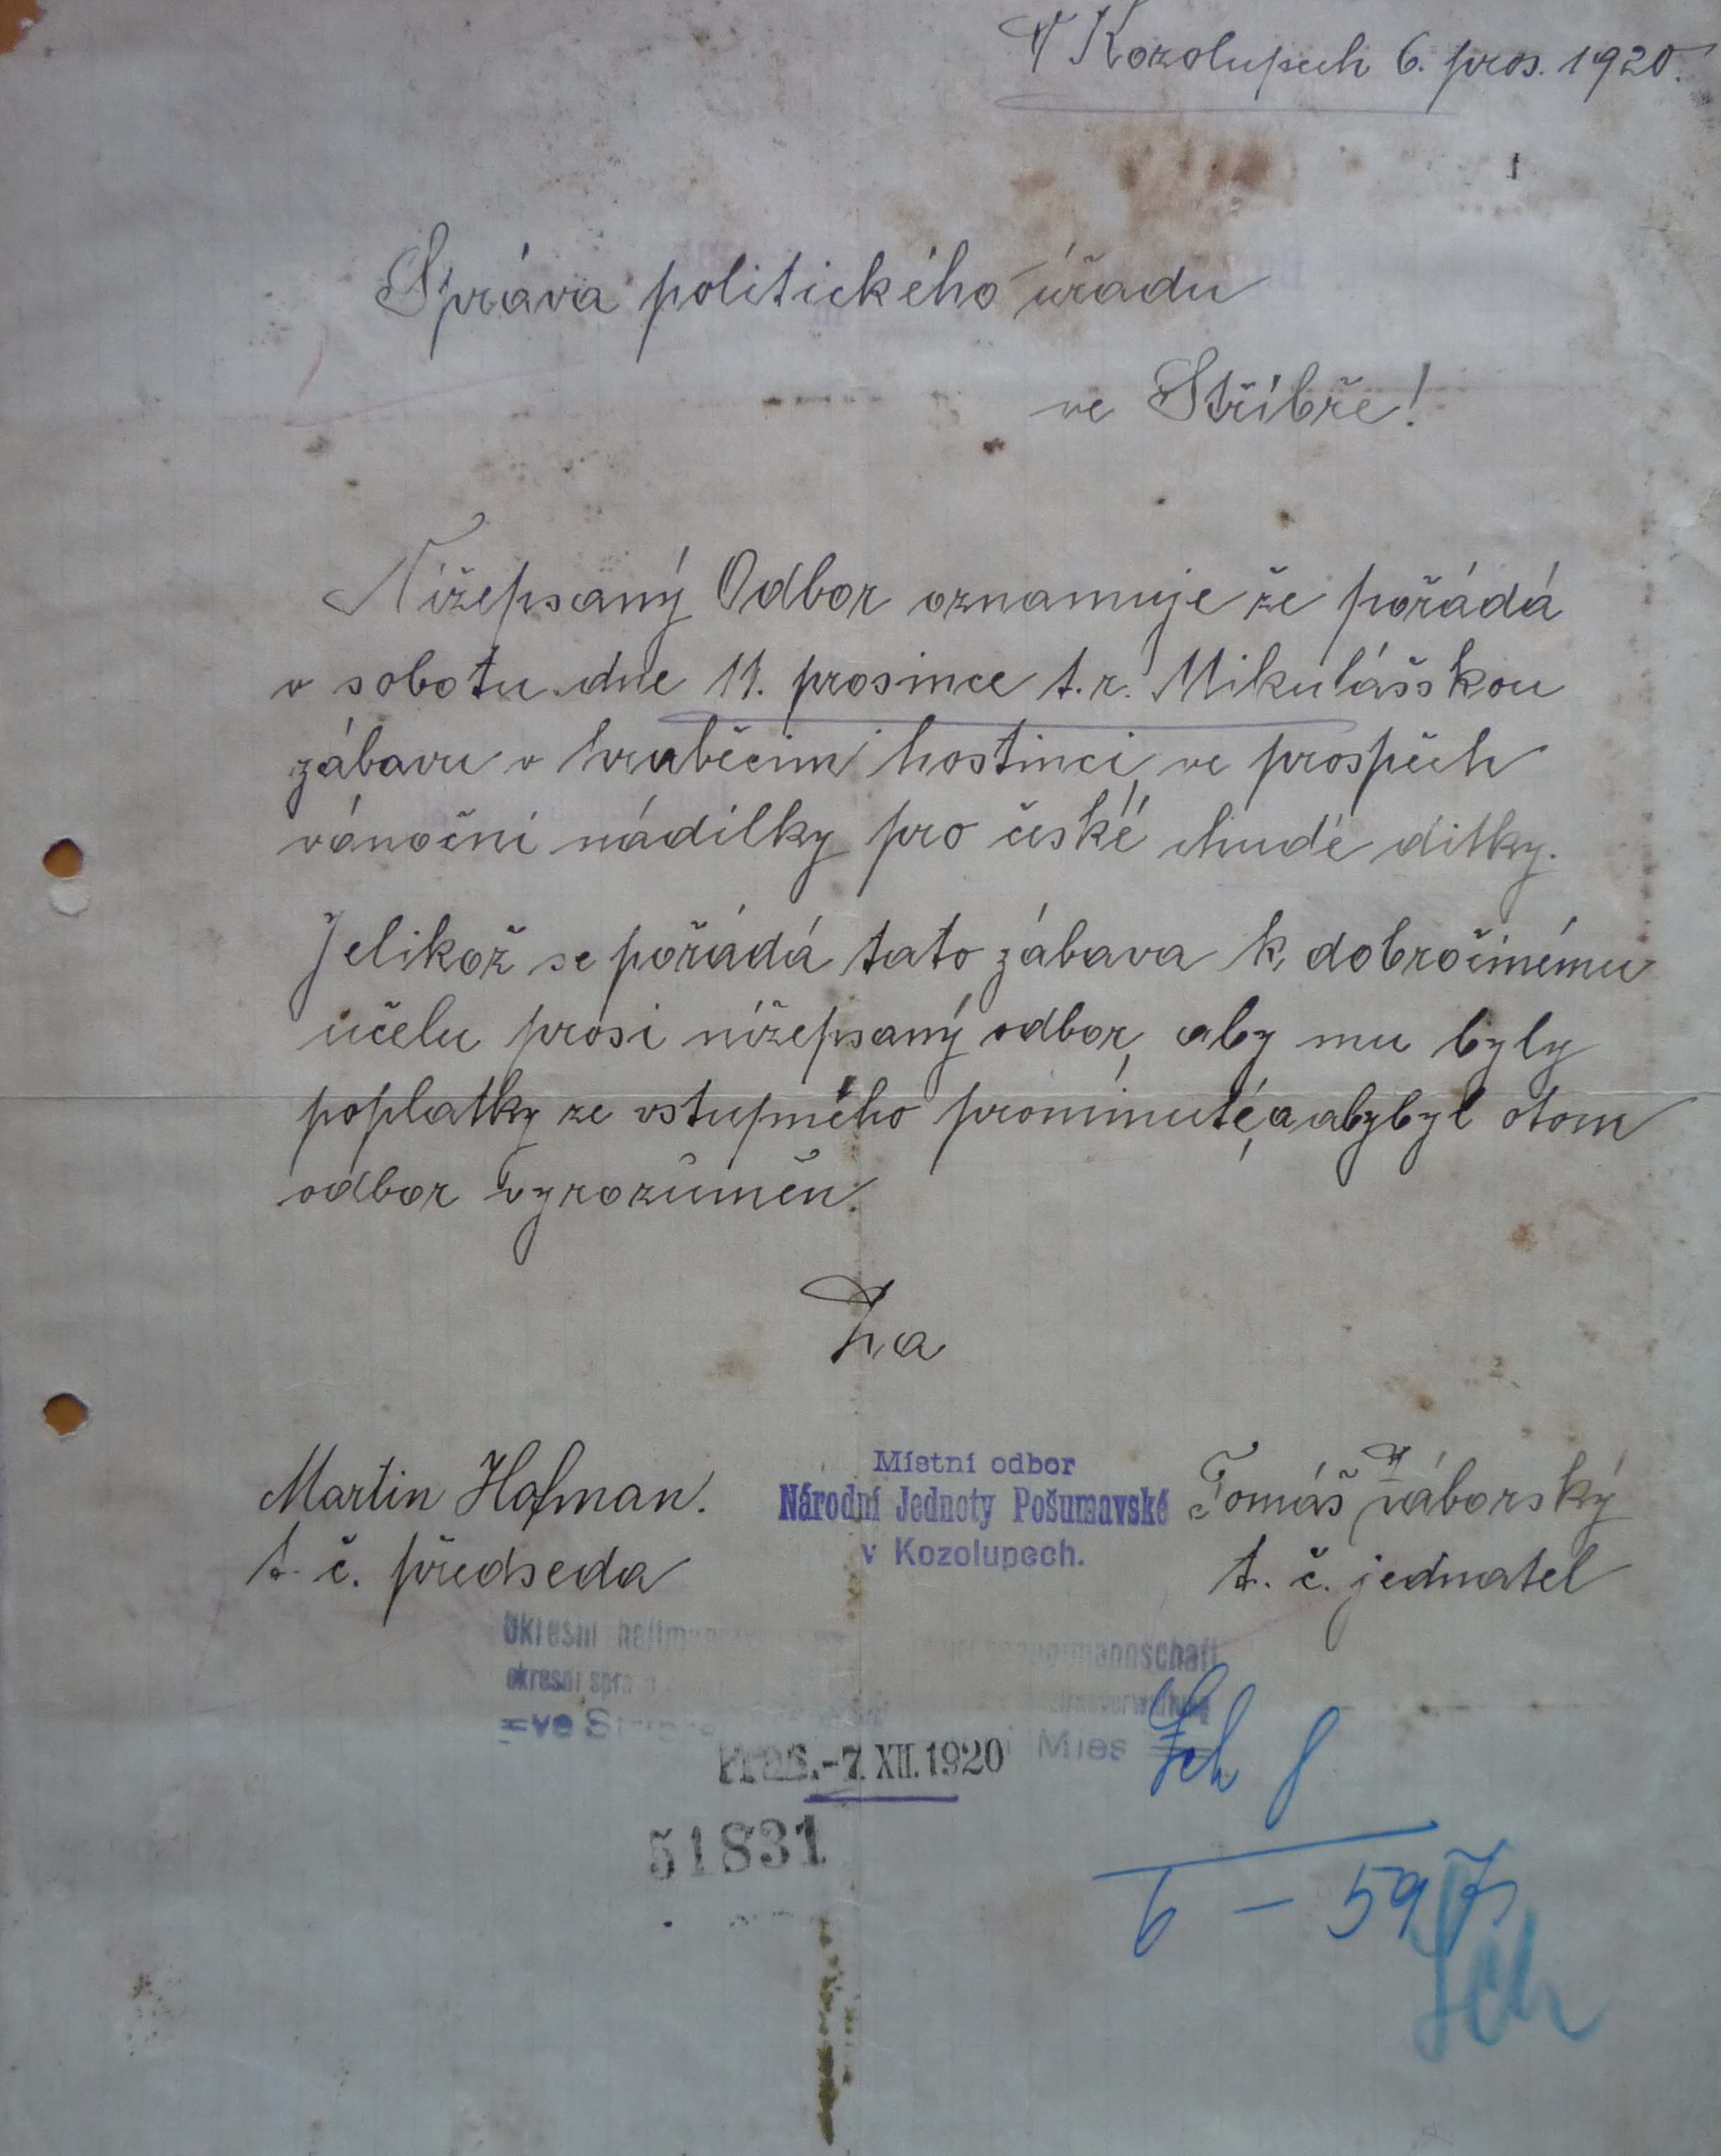 V Kozolupech 6. pros. 1920.
Správa politického úřadu
ve Stříbře!
Nížepsaný Odbor oznamuje že pořádá
v sobotu dne 11. prosince t.r. Mikulášskou
zábavu v hostinci, ve prospěch
vánoční nádílky pro české chudé dítky.
Jelikož se pořádá tato zábava k dobročinému
účelu prosí nížepsaný odbor, aby mu byly
poplatky ze vstupného prominuté, a abybyl otom
odbor vyrozůměn.
Za
Martin Hofman.
t. č. předseda
Místní odbor
Národní Jednoty Pošumavské
v Kozolupech.
Tomáš Záborský
t. č. jednatel
Okresní
okresní
=ve
Mies
Präs. -7. XII. 1920
51831
6 - 597